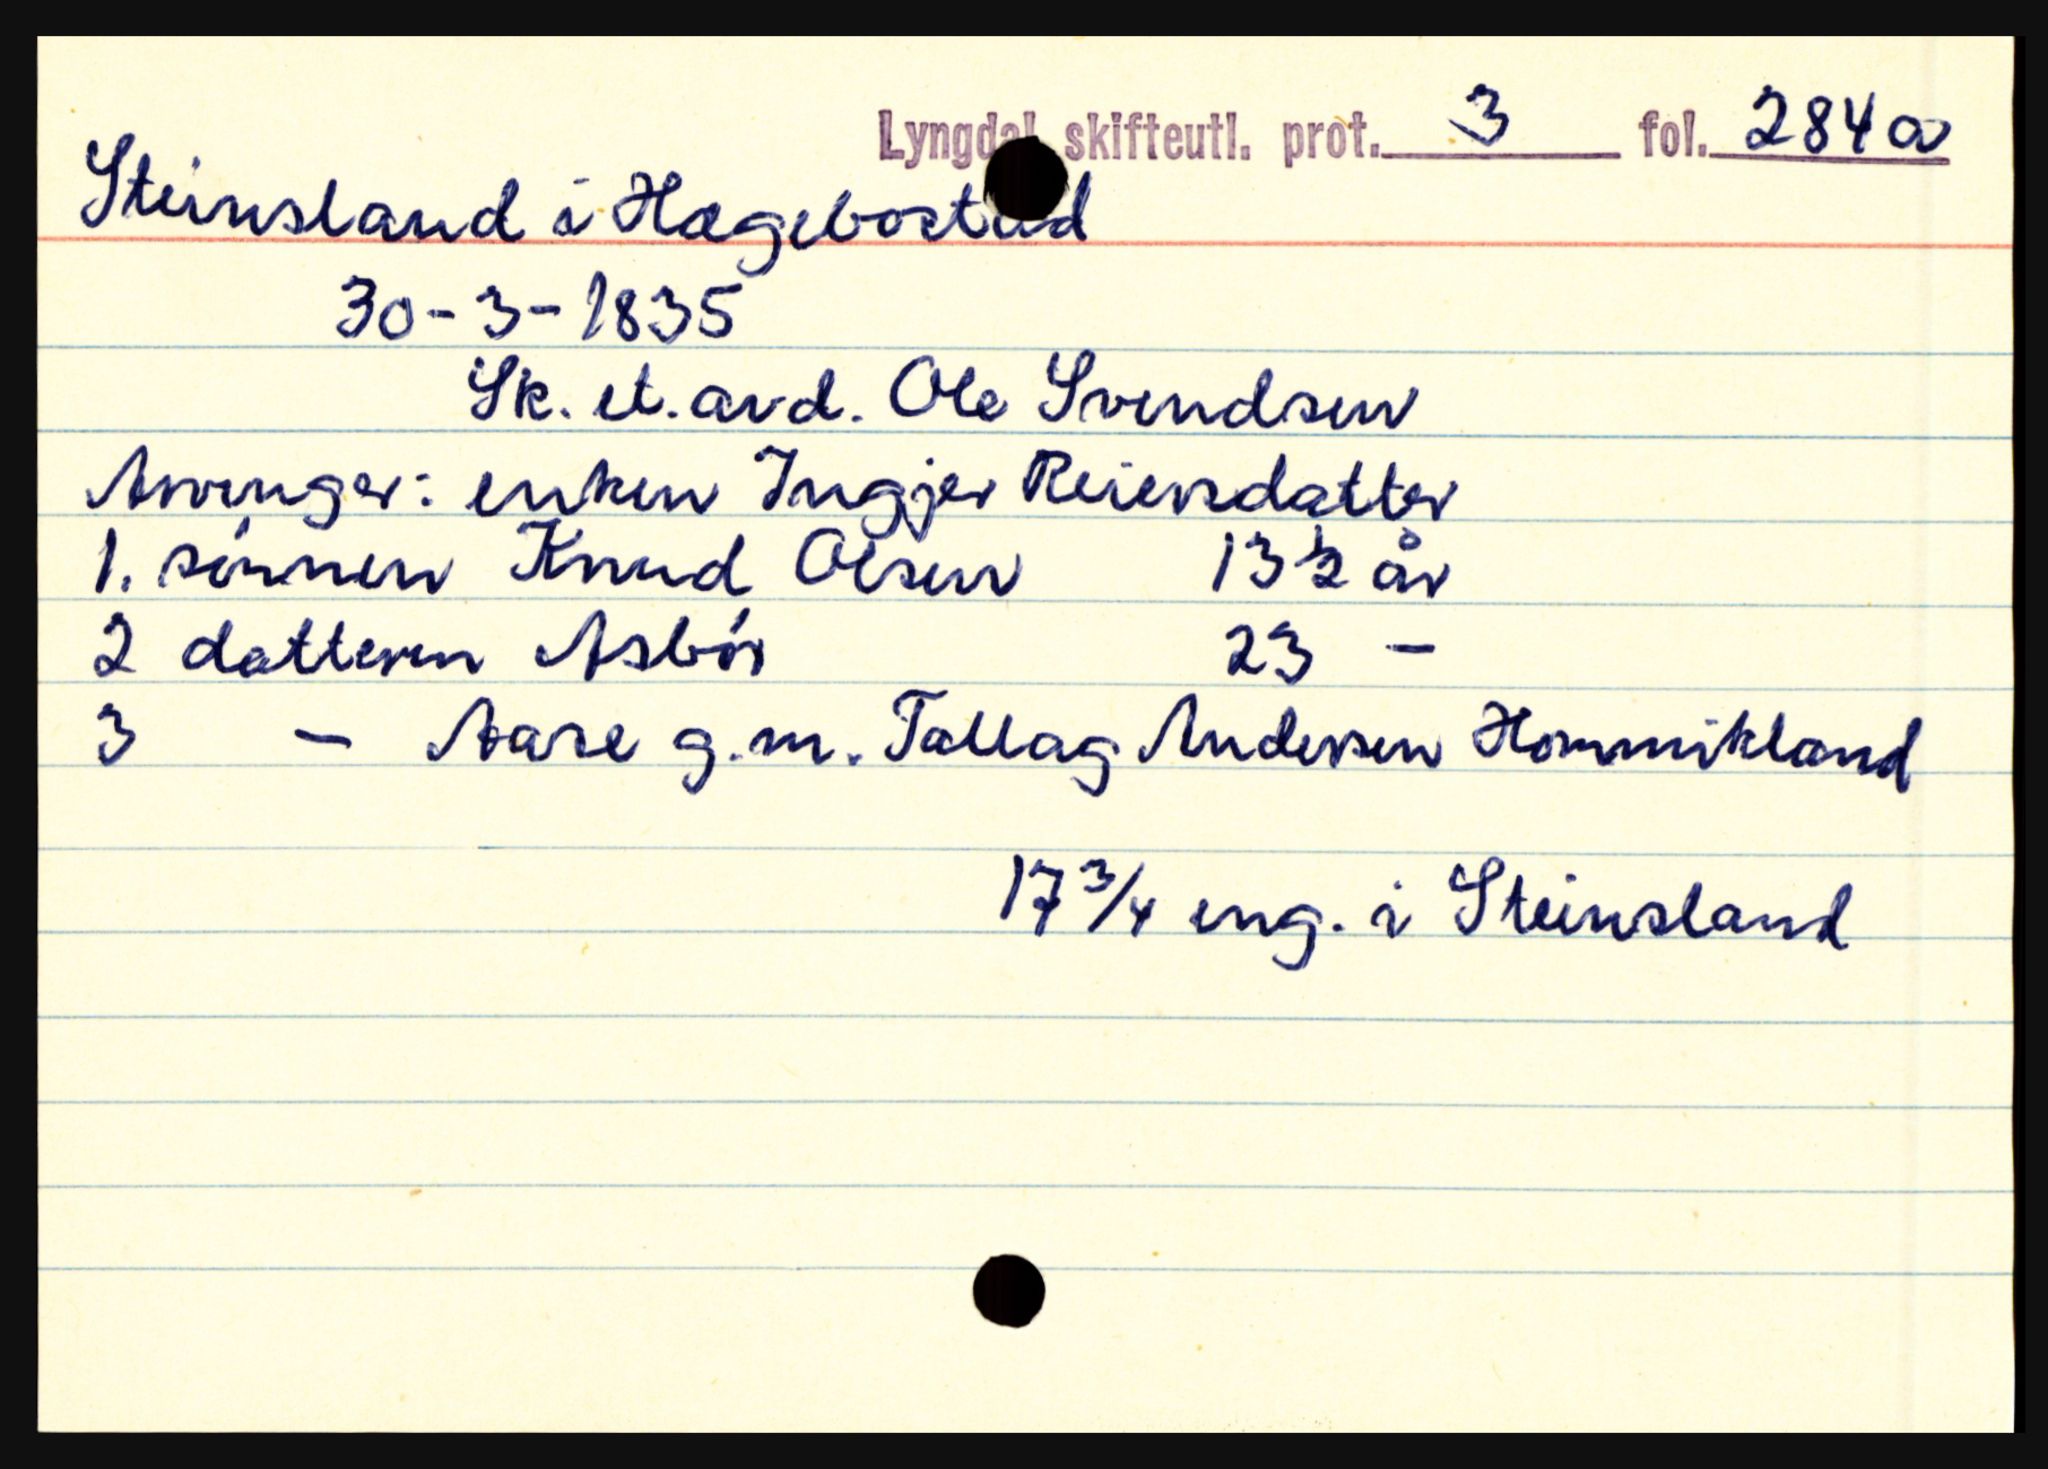 Lyngdal skifteutl. prot. 3 fol. 284a
Steinsland i Hægebostad
30-3-1835
Sk. et. avd. Ole Svendsen
Arvinger: enken Ingjer Reiersdatter
1. sønnen Knud Olsen 13 1/2 år
2 datteren Asbør 23 -
3 - Aase g.m. Tallag Andersen Hommikland
17 3/4 eng. i Steinsland